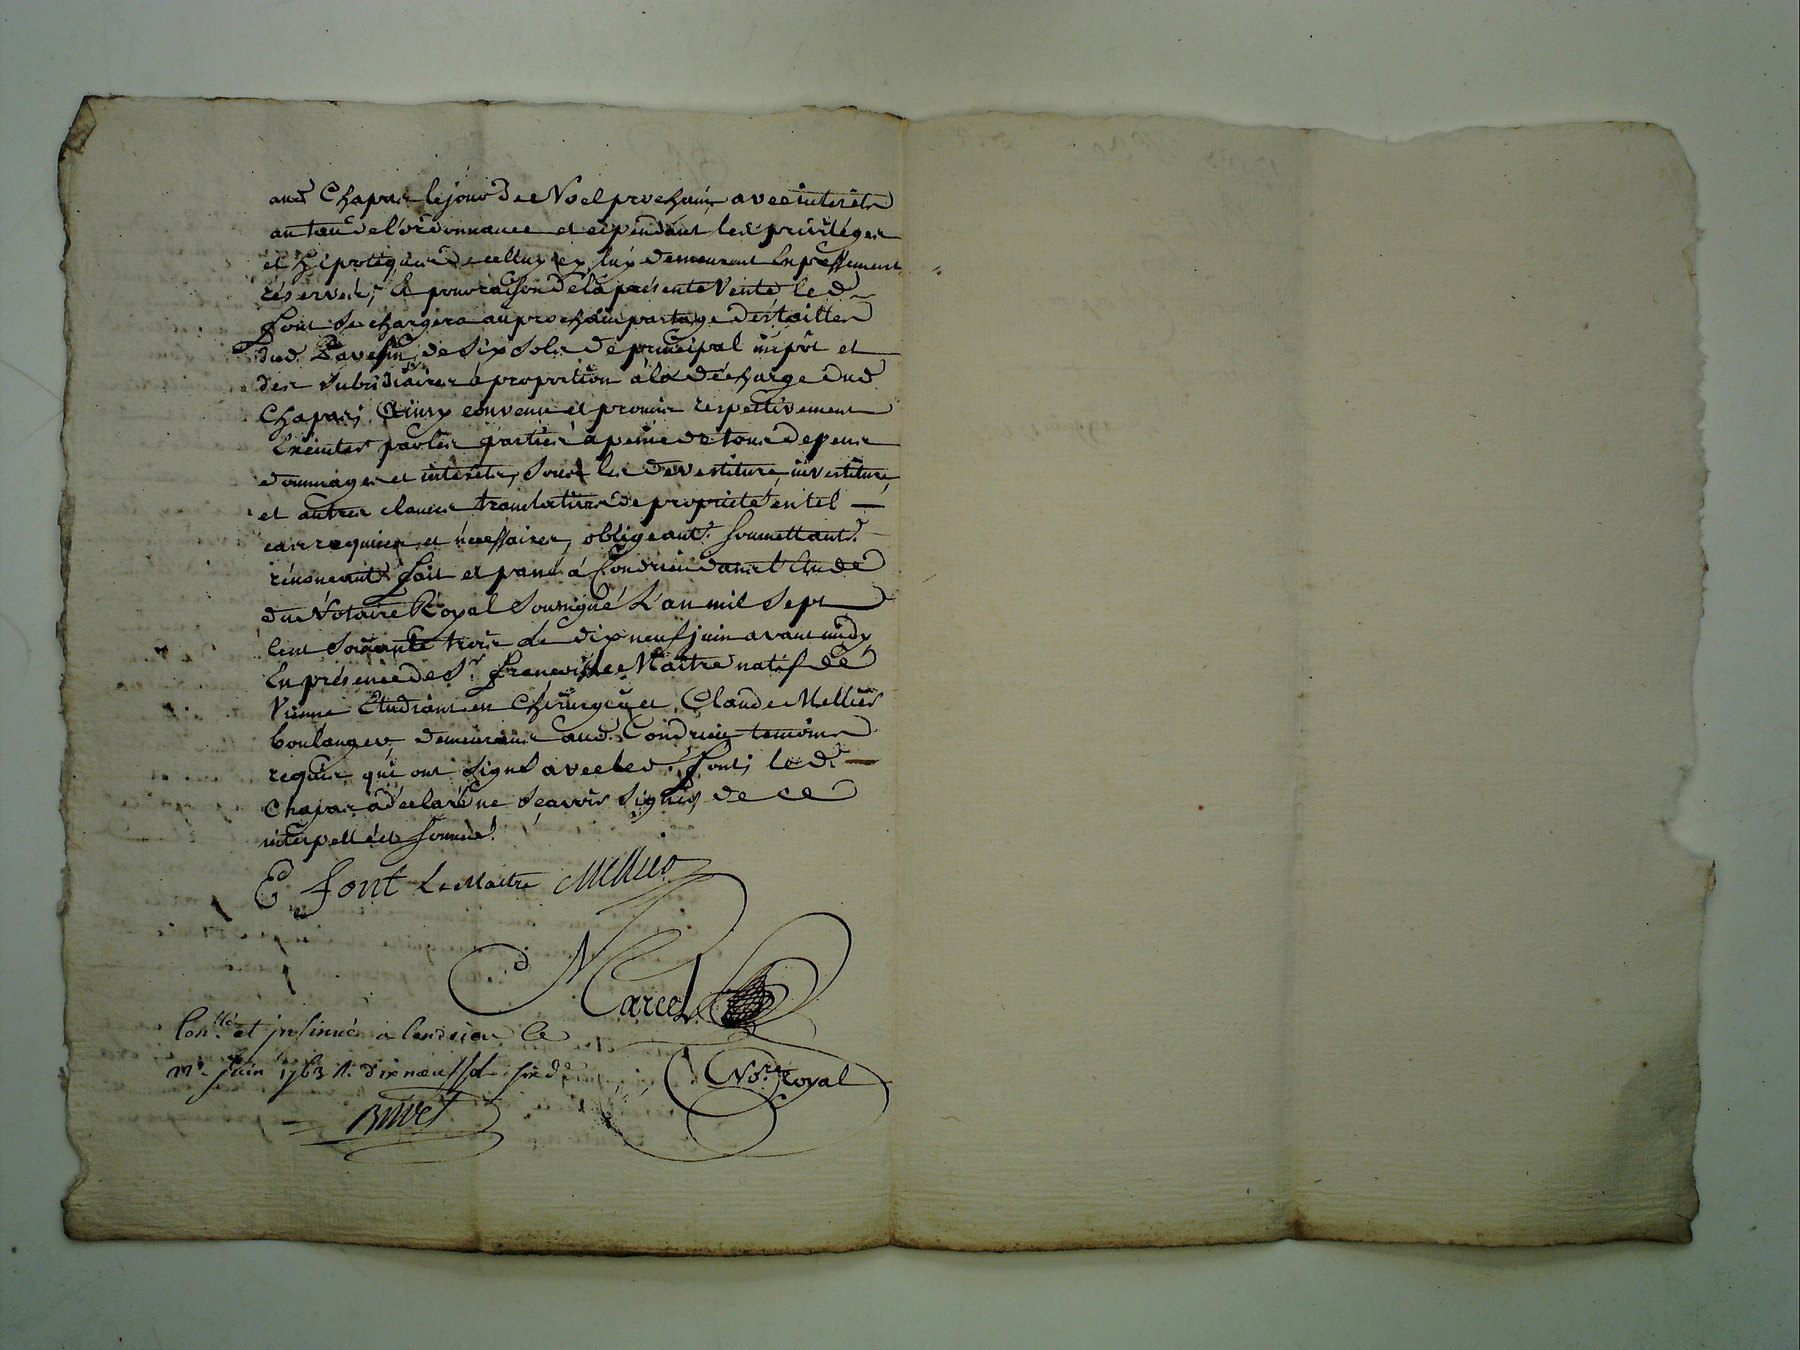 aud Chapas le jour de Noel prochain avec interets
au taux de l'ordonnance et cependant les privileges
et hipoteques de celluy cy luy demeurent Expressement
réservés, Et pour raison de la présente Vente led
font se chargera au prochain partage des tailles
dud Pavesin, de Six Sols de principal impôt et
des subsidiaires à proportion à la décharge dud
Chapas; Ainsy convenu et promis respectivement
par les parties à peine de tous depens
dommages et intérêts, sous les devestiture, investiture,
et autres clauses translatives de propriété en tel
cas requises et nécessaires, obligeant soumettant
rénonceant fait et passé à Condrieu dans l'Etude
du Notaire Royal Soussigné L'an mil Sept
Cent Soixante trois Le dix neuf juin avant midy,
En présence de Sr. François Le Maitre natif de
Vienne Etudiant en Chirurgie et Claude Mellier
boulanger, demeurant aud. Condrieu temoins
requis qui ont signé avec led. font; led.
Chapas a déclaré ne sçavoir signer de ce
interpellé et sommé.
E font Le Maitre Mellier
Marcel
Not. Royal
Con.llé et insinué a Condrieu le
juin 1763 R. dix neuf sol six d.